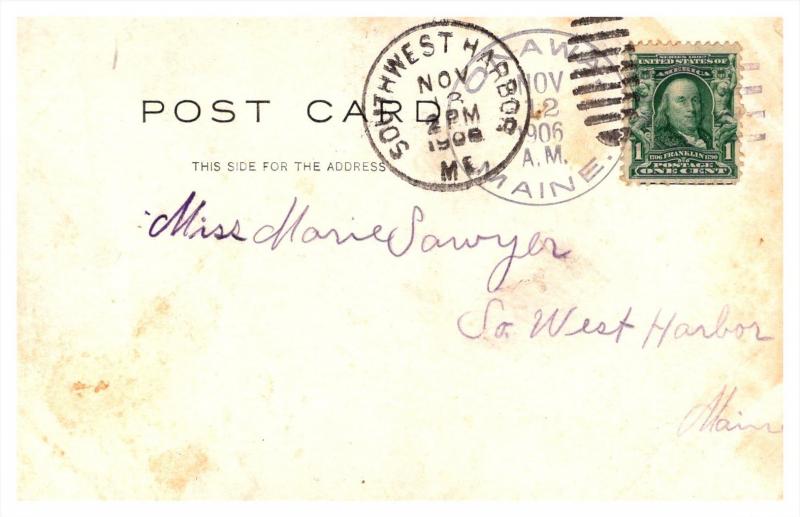 SOUTHWEST HARBOR
NOV
2 PM
1906
ME.
NOV
12
1906
A.M.
MAINE.
SERIES 1902
UNITED STATES OF
AMERICA
1 1706 FRANKLIN 1790 1
POSTAGE
ONE CENT
POST CARD
THIS SIDE FOR THE ADDRESS
Miss Marie Sawyer
So. West Harbor
Maine